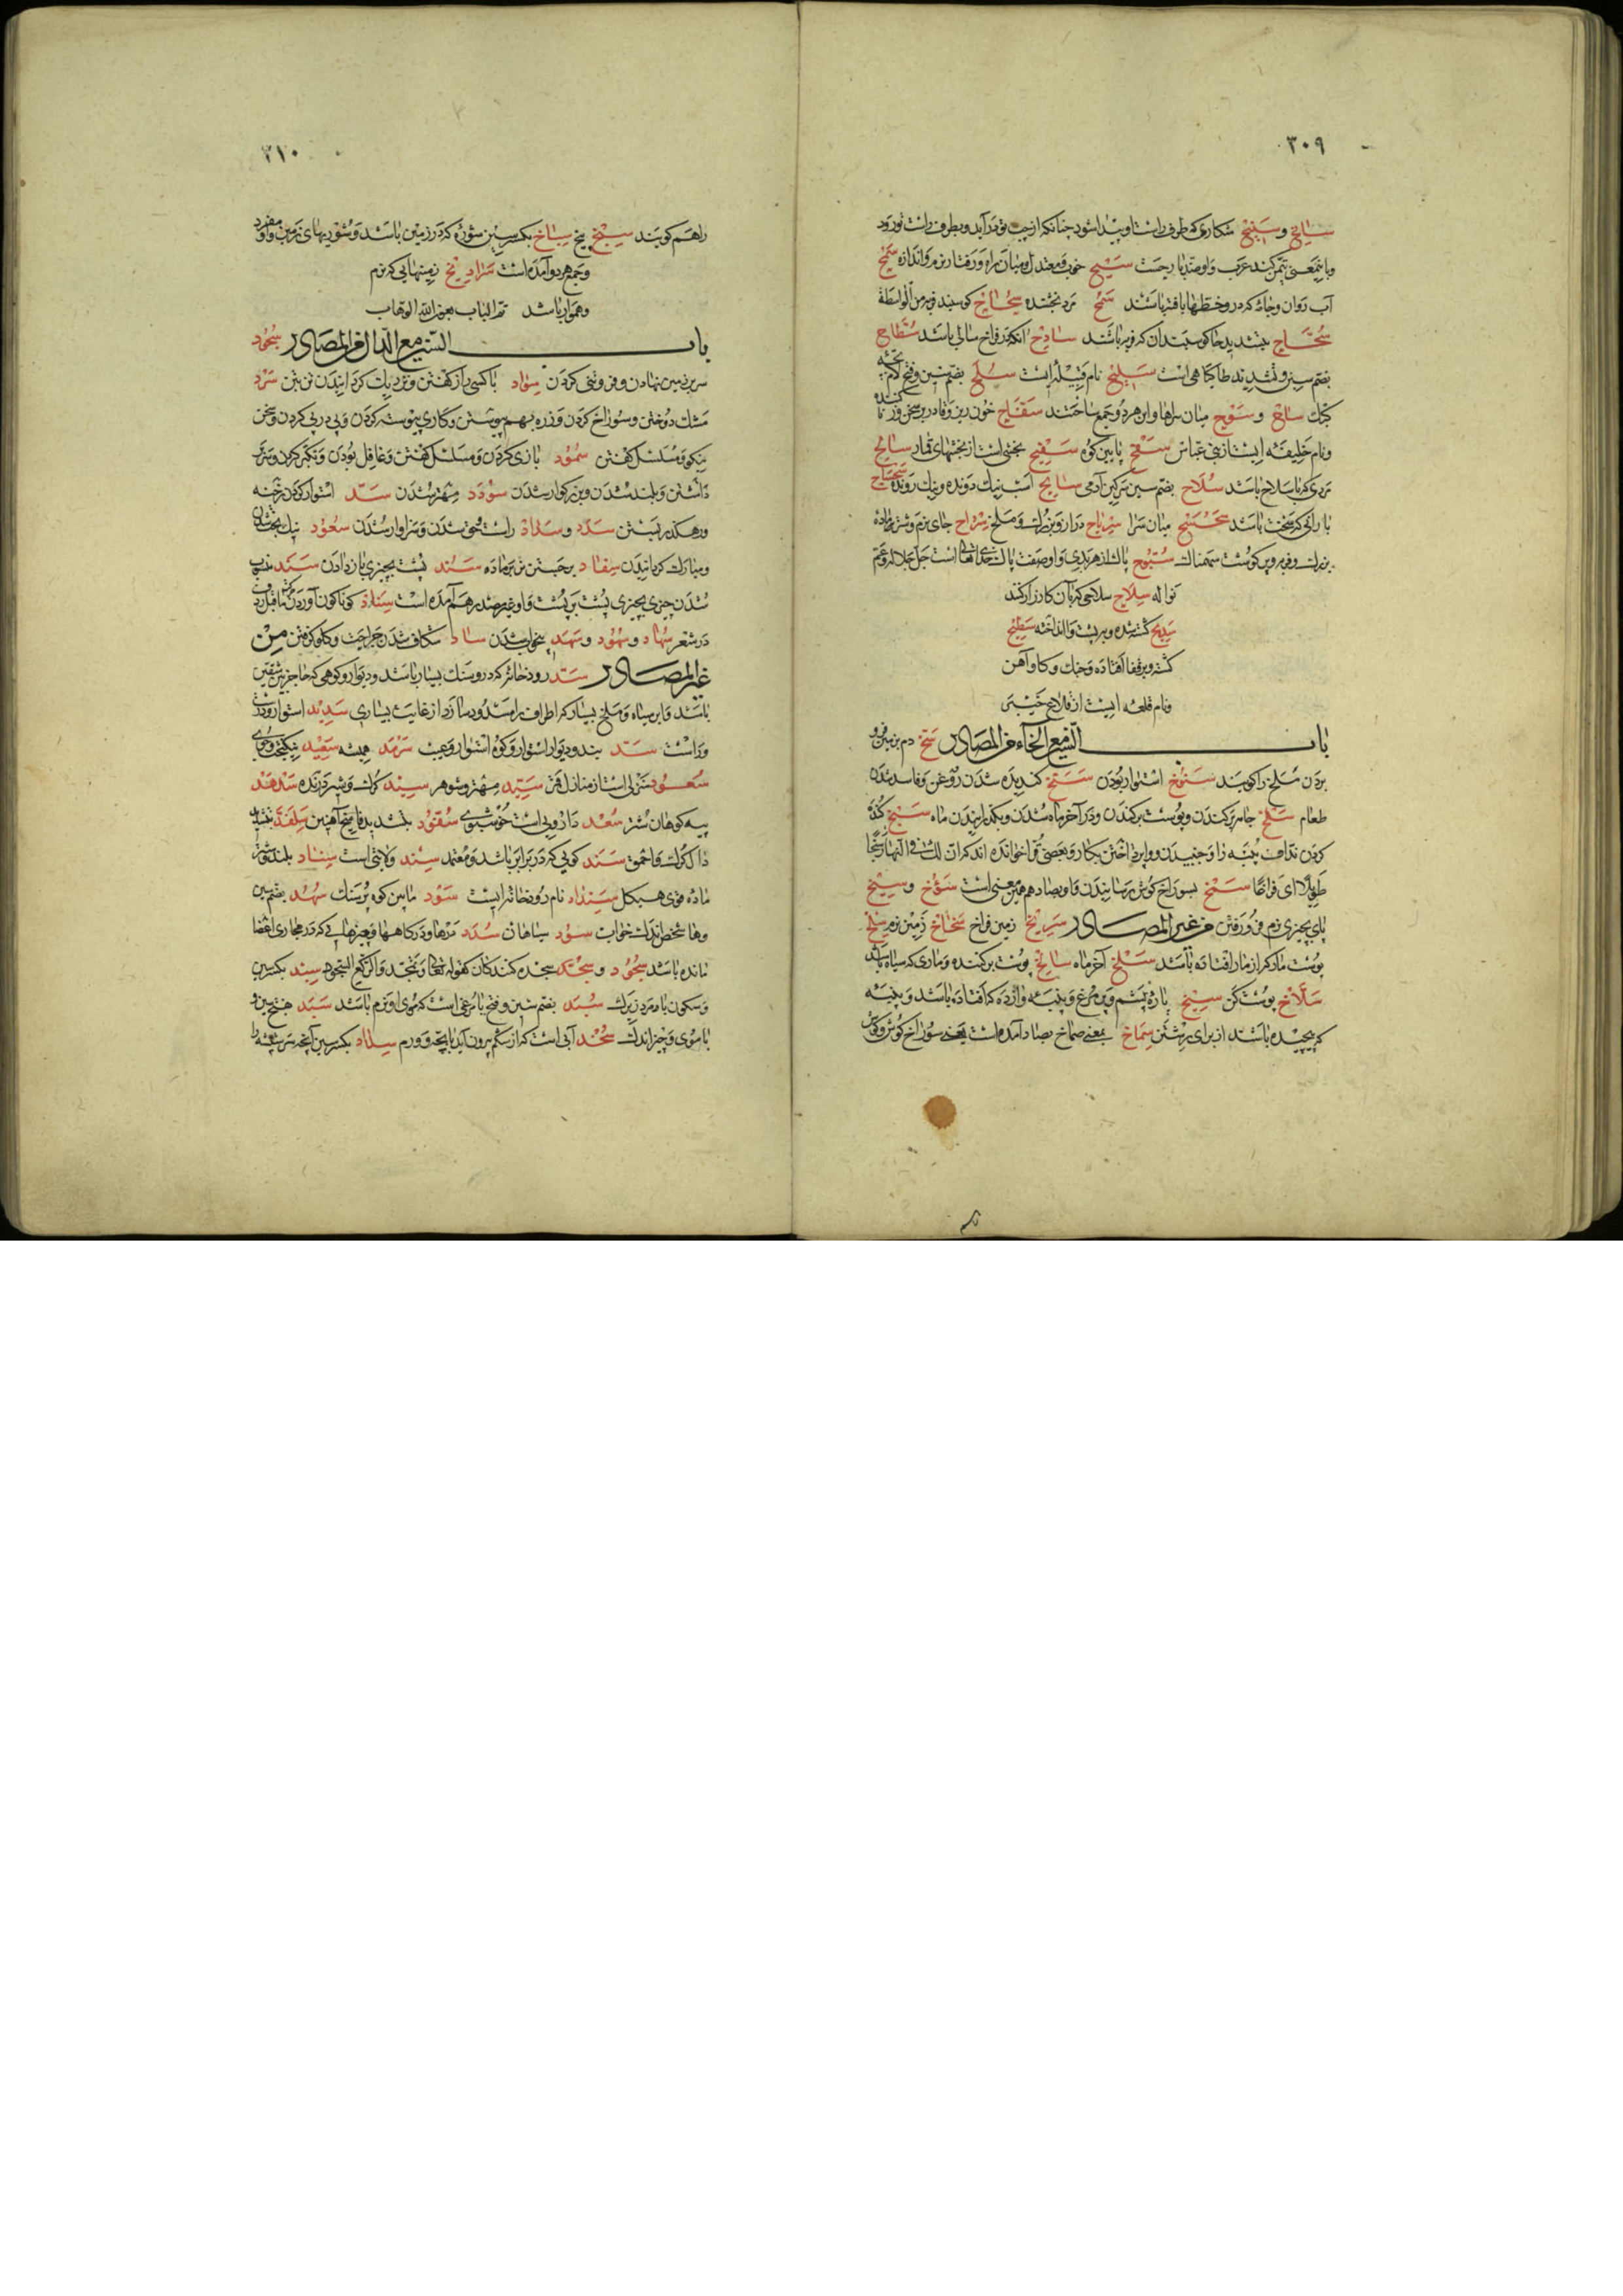 ٣٠٩
سانح و سنیح شکاری که طرف راست او پیدا شود چنانکه از چپ تو درآید و بطرف راست تو رود
و باینمعنی تیمن کنند عرب و او ضد بارحست سجیح خوب و معتدل و میان راه و رفتار نرم و اندازه سیح
آب روان و جامه که در و خطها بافته باشند سمح مرد بخشنده سحاح کوسپند فربه من الواسطة
سحاح بتشدید حا کوسپندان که فربه باشند سادح انکه در فراخ سالی باشد سطاح
بضم سین و تشدید طا کیاهی است سلیح نام قبیله ایست سلح بضم سین و فتح لام بچه
کبک سفاح خون ریز و قادر بر سخن
و نام خلیفه ایست از بنی عباس سفح پایین کوه سفیح بخشی است از بخشهای قمار سالح
مردی که با سلاح باشد سلاح بضم سین سرکین آدمی سابح اسب نیک دونده و نیک رونده
بارانی که سخت باشد میان سرا سریاح دراز و بزرک و ملخ سرداح جای نرم و شتر ماده
بزرک و فربه و پر کوشت سهمناک سبوح پاک از هر بدی و او صفت پاک خدای تعالی است جل جلاله و عم
نواله سلاح سلاحی که بآن کارزار کنند
سدیح کشته شده و بر پشت وا انداخته سطیح
کشته و بر قفا افتاده و خنک و کاوآهن
و نام قلعه ایست از قلاع خیبر
باب السین مع الخاء من المصادر سخ دم بزمین فرو
بردن ملخ را کویند سنوخ استوار بودن سنخ کندیده شدن روغن و فاسد شدن
طعام سلخ جامه برکندن و پوست برکندن و در آخر ماه شدن و بکذرانیدن ماه سبخ کنده
کردن نداف پنبه را و جنبیدن و واپرداختن بکار و بعضی قرا خوانده اند که ان لک فی النهار سبخا
طویلا ای فراغا سمخ بسوراخ کوش رسانیدن و او بصاد هم بهمین معنی است سوخ و سیخ
پای بچیزی نرم فرو رفتن من غیر المصادر سریخ زمین فراخ سخاخ زمین نرم سلخ
پوست مار که از مار افتاده باشد سلخ آخر ماه سالخ پوست برکننده و ماری که سیاه باشد
سلاخ پوست کن سبیخ پارۀ پشم و پر مرغ و پنبه وازده که افتاده باشد و پنبه
که پیچیده باشند از برای رشتن سماخ بمعنی صماخ بصاد آمده است یعنی سوراخ کوش و کوش
٣١٠
را هم کویند سنخ بیخ سباخ بکسر سین شوره که در زمین باشد و شوریهای زمین و او مفرد
و جمع هر دو آمده است سرادیخ زمینهایی که نرم
و هموار باشد تم الباب بعون الله الوهاب
باب السین مع الدال من المصادر سجود
سر بزمین نهادن و فروتنی کردن سواد با کسی راز کفتن و نزدیک کردانیدن تن بتن سرد
مشک دوختن و سوراخ کردن و زره بهم پیوستن و کاری پیوسته کردن و پی در پی کردن و سخن
نیکو و مسلسل کفتن سمود بازی کردن و مسلسل کفتن و غافل بودن و تکبر کردن و سر بر
داشتن و بلند شدن و بزرکوار شدن سودد مهتر شدن سد استوار کردن رخنه
و رهکذر بستن سدد و سداد راست و حق شدن و سزاوار شدن سعود نیک بخت شدن
و مبارک کردانیدن سفاد برجستن نر بر ماده سنود پشت بچیزی باز دادن سند منسوب
شدن چیزی بچیزی پشت بر پشت و او غیر مصدر هم آمده است سناد کوناکون آوردن ما قبل ردف
در شعر سهاد و سهود و سهد بیخواب شدن ساد شکافته شدن جراحت و کلو کرفتن من
غیر المصادر سد رودخانۀ که در و سنک بسیار باشد و دیوار و کوهی که حاجز بین شقین
باشد و ابر سیاه و ملخ بسیار که اطراف را مسدود سازد از غایت بسیاری سدید استوار و درست
و راست سد بند و دیوار استوار و کوه استوار و عیب سرمد همیشه سعید نیکبخت و جوی
سعود منزلی است از منازل قمر سید مهتر و شوهر سید کرک و شیر درنده سدهد
پیه کوهان شتر سعد دارویی است خوشبوی سفود بتشدید فا سیخ آهنین سلغد بتشدید
دال کرک و احمق سند کوئی که در برابر باشد و معتمد سند ولایتی است سناد بلند شتر
ماده قوی هیکل سنداد نام رودخانه ایست سود مابین کوه پر سنک سهد بضم سین
و ها شخص اندک خواب سود سیاهان سدد
مانده باشد سجود و سجد سجده کنندکان کقوله تعالی و الرکع السجود سبد بکسر سین
و سکون با مرد زیرک سبد بضم سین و فتح با مرغی است که موی او نرم باشد سبد بفتح سین و
با موی و چیز اندک سخد آبی است که از شکم بیرون آید با بچه و ورم سداد بکسر سین آنچه سر شیشه را